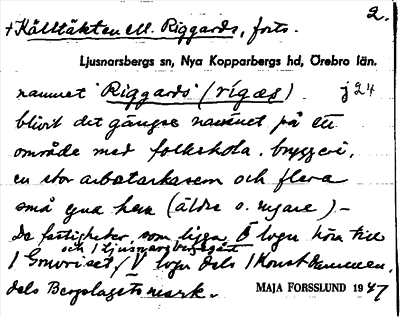 2.
+ Källtäkten ell. Riggards, forts.
Ljusnarsbergs sn, Nya Kopparbergs hd, Örebro län.
namnet "Riggards" (rigas) j 24
blivit det gängse namnet på ett
område med folkskola, bryggeri,
en stor arbetarkasern och flera
små egna hem (äldre o. nyare). –
De fastigheter som ligga Ö logn höra till
och 1 Ljusnarsbergsgård
1 Gruvriset / V logn dels 1 Konstdammen,
dels Bergslagets mark.
MAJA FORSSLUND 1947